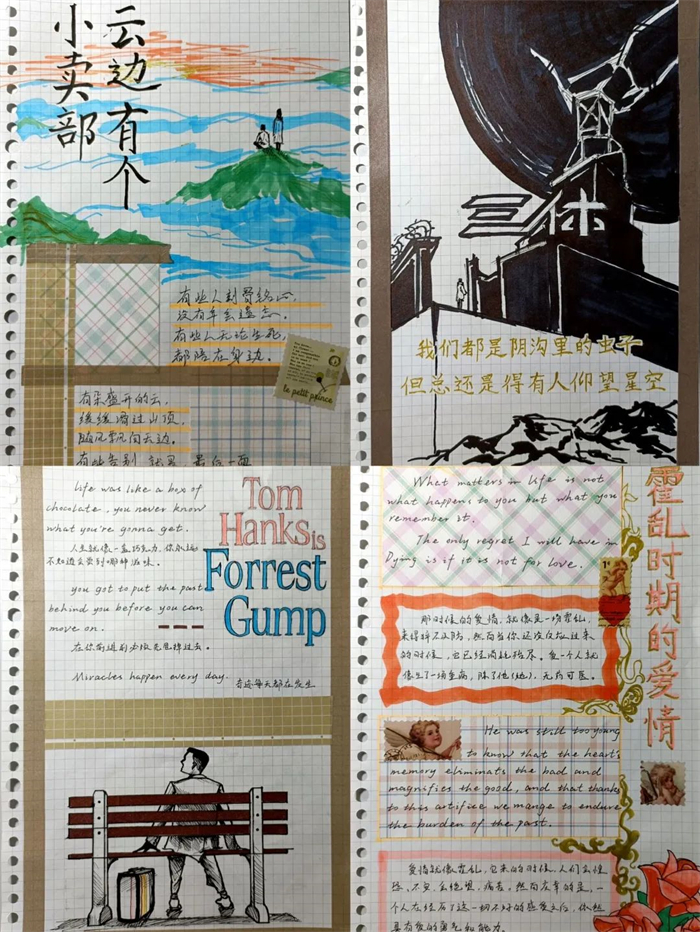 云边有个
小卖部
有些人刻骨铭心,
没有年会遗忘。
有些人无论生死,
都陪在身边。
le petit prince
有朵盛开的云,
缓缓滑过山顶,
随风飘向天边。
有些告别 就是 最后一面
三体
我们都是阴沟里的虫子
但总还是得有人仰望星空
Life was like a box of
chocolate, you never know
what you're gonna get.
人生就像一盒巧克力,你永远
不知道会尝到哪种滋味。
you got to put the past
behind you before you can
move on.
在你前进前必须先忘掉过去。
Miracles happen every day.
奇迹每天都在发生
Tom
Hanks is
Forrest
Gump
What matters in life is not
what happens to you but what you
remember it.
The only regret I will have in
Dying is if it is not for love.
霍乱时期的爱情
那时候的爱情,就像是一场霍乱,
来得猝不及防,然而当你还没反应过来
的时候,它已经消耗殆尽。爱一个人就
像生了一场重病,除了他(她),无药可医。
He was still too young
to know that the heart's
memory eliminats the bad and
magnifies the good, and that thanks
to this artifice we mange to endure
the burden of the past.
爱情就像霍乱,它来的时候,人们会惶
恐、不安,会绝望,痛苦。然而庆幸的是,一
个人在经历了这一切不好的感受之后,依然
具有爱的勇气和能力。